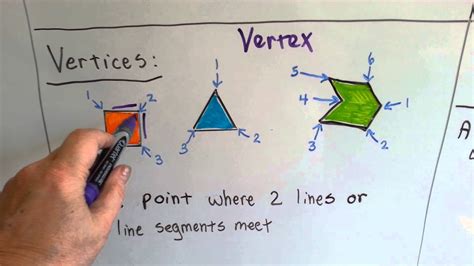 Vertex
Vertices:
1 2
3
1
3 2
6
5
4 1
3 2
point where 2 lines or
line segments meet
A